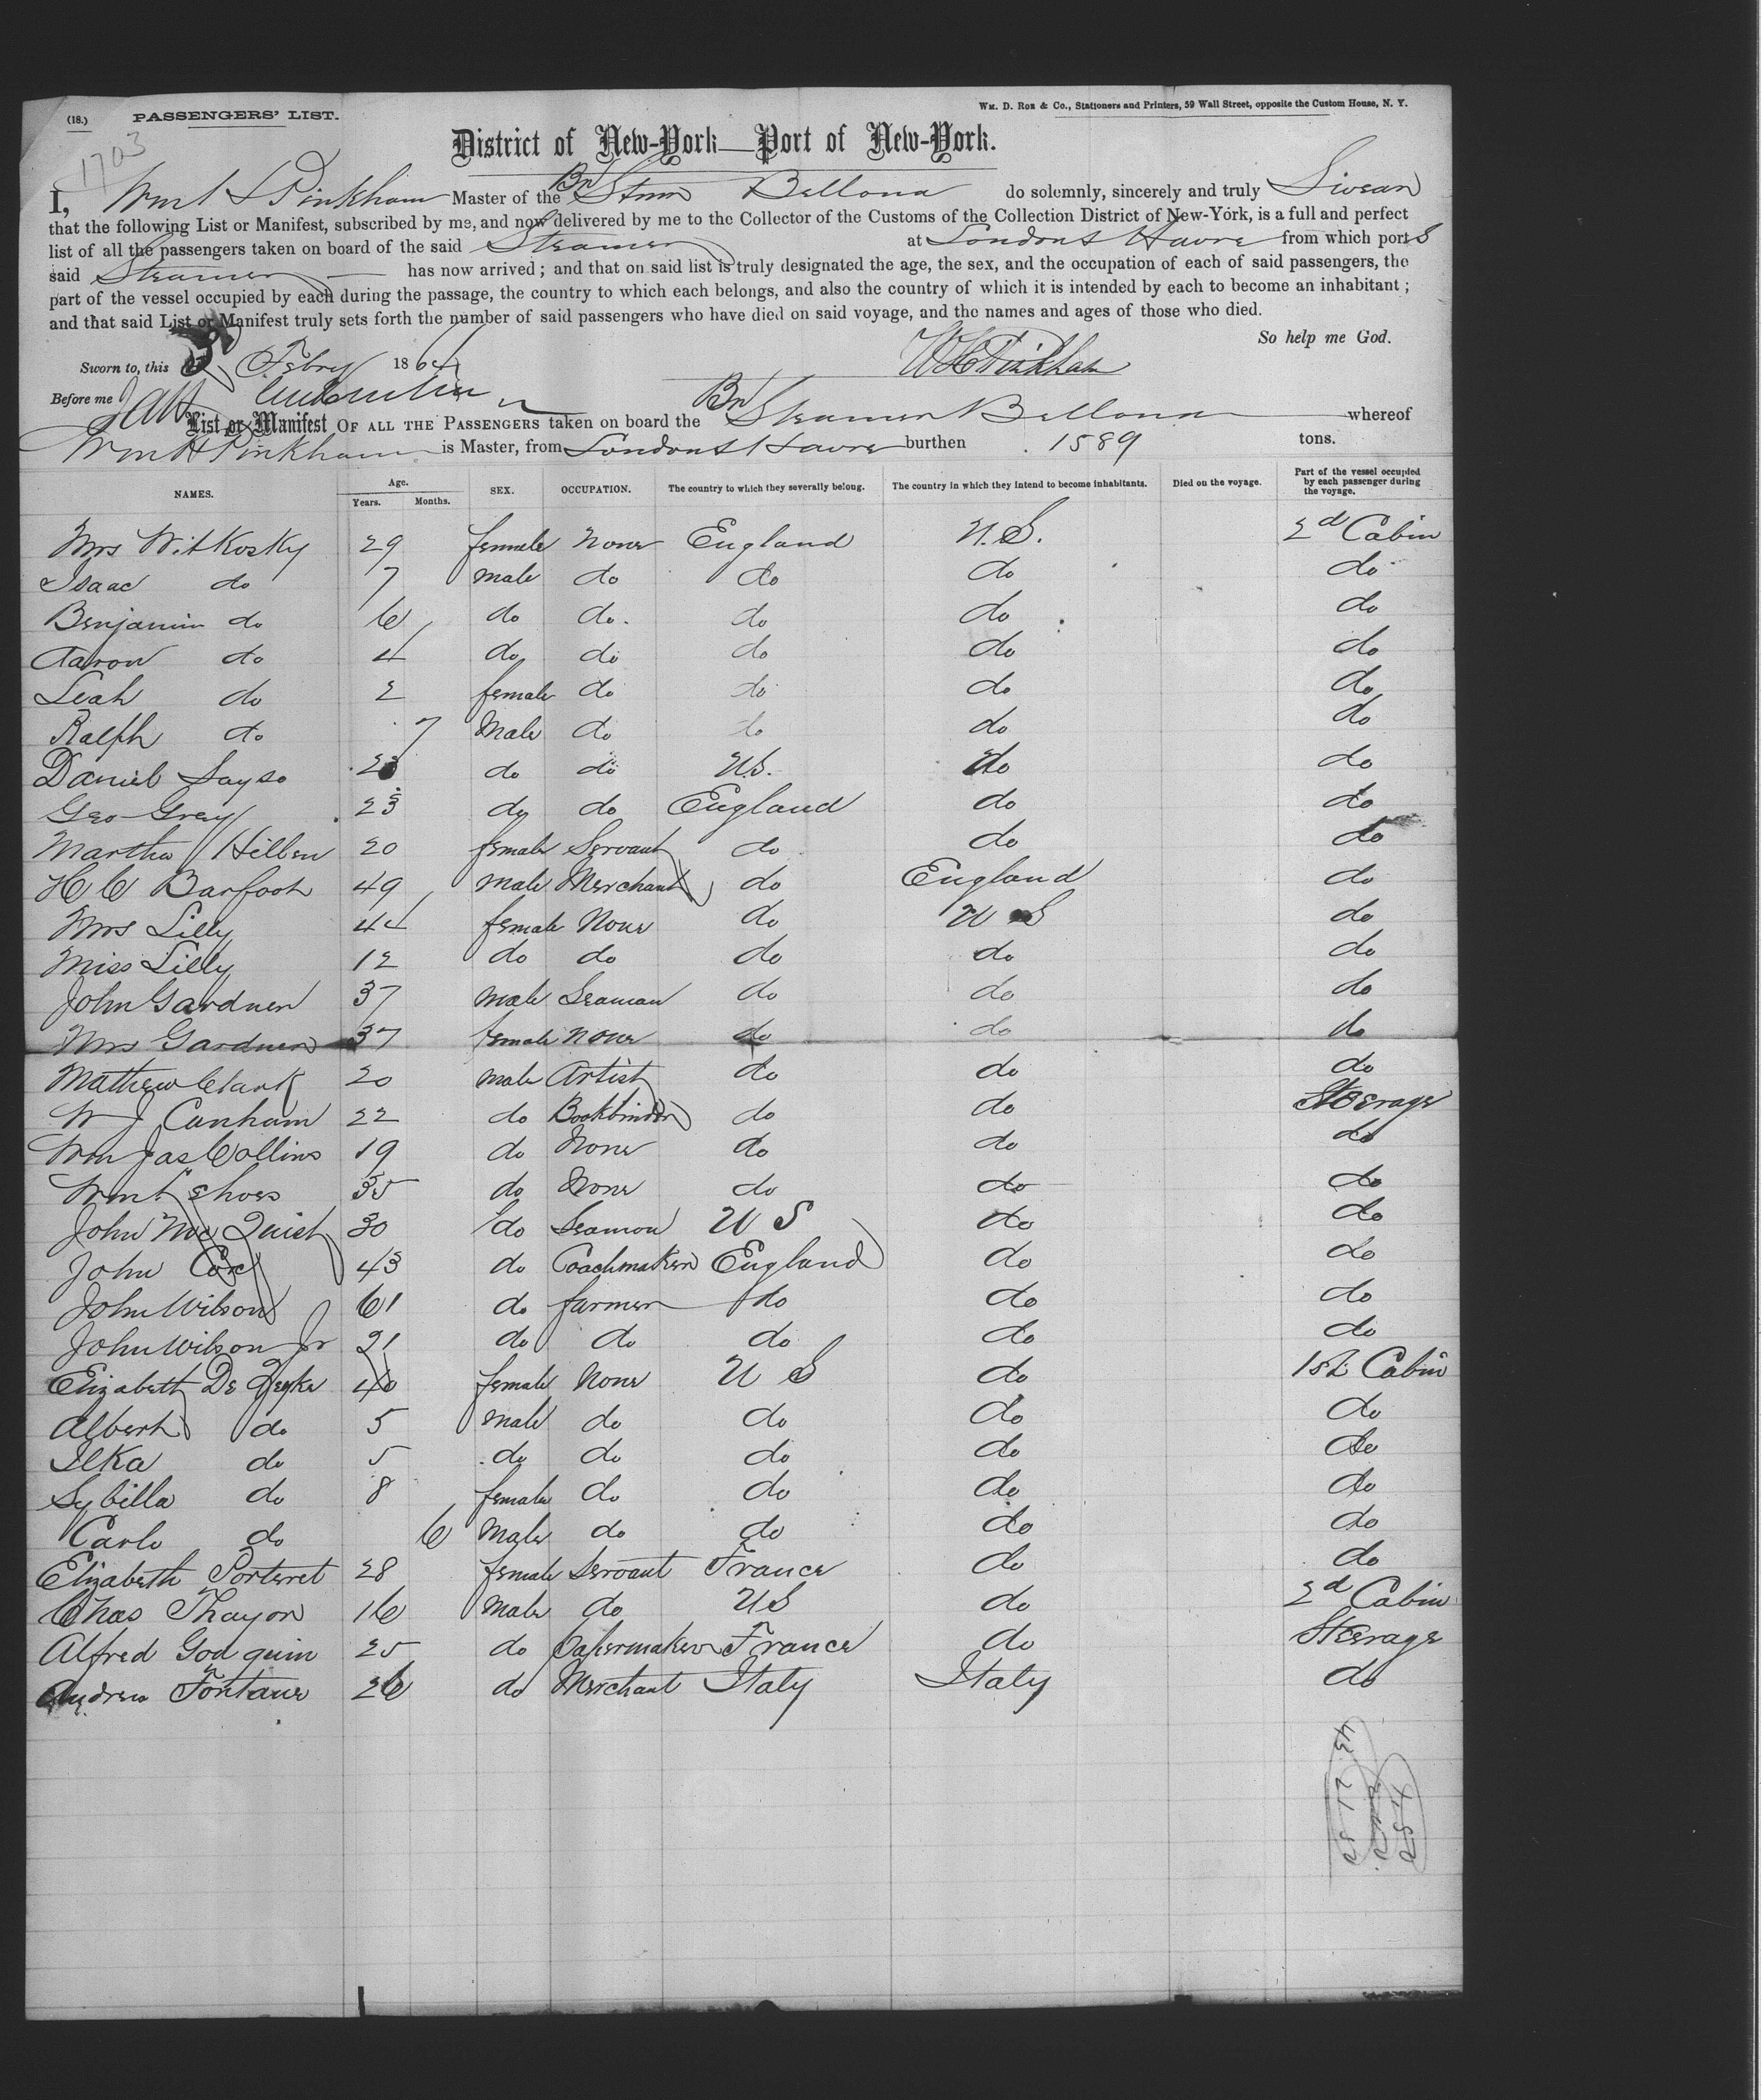 (18.) PASSENGERS' LIST. Wm. D. Roe & Co., Stationers and Printers, 59 Wall Street, opposite the Custom House, N. Y.
1703
District of New-York—Port of New-York.
I, Wm H Pinkham Master of the Br Stmr Bellona do solemnly, sincerely and truly Swear
that the following List or Manifest, subscribed by me, and now delivered by me to the Collector of the Customs of the Collection District of New-York, is a full and perfect
list of all the passengers taken on board of the said Steamer at London & Havre from which port s
said Steamer has now arrived; and that on said list is truly designated the age, the sex, and the occupation of each of said passengers, the
part of the vessel occupied by each during the passage, the country to which each belongs, and also the country of which it is intended by each to become an inhabitant;
and that said List or Manifest truly sets forth the number of said passengers who have died on said voyage, and the names and ages of those who died.
So help me God.
Sworn to, this Febry 1864 W H Pinkham
Before me
List or Manifest OF ALL THE PASSENGERS taken on board the Br Steamer Bellona whereof
Wm H Pinkham is Master, from London & Havre burthen 1589 tons.
NAMES. Age. Years. Months. SEX. OCCUPATION. The country to which they severally belong. The country in which they intend to become inhabitants. Died on the voyage. Part of the vessel occupied by each passenger during the voyage.
Mrs Witkosky 29 female None England U.S. 2d Cabin
Isaac do 7 male do do do do
Benjamin do 6 do do do do do
Aaron do 4 do do do do do
Leah do 2 female do do do do
Ralph do 7 Male do do do do
Daniel Sayso do do U.S. do do
Geo Grey 23 do do England do do
Martha Hillen 20 female Servant do do do
H C Barfoot 49 male Merchant do England do
Mrs Lilly 44 female None do U S do
Miss Lilly 12 do do do do do
John Gardner 37 male Seaman do do do
Mrs Gardner 37 female none do do do
Mathew Clark 20 male Artist do do do
W J Canham 22 do Bookbinder do do Steerage
Wm Jas Collins 19 do None do do do
Wm Shoes 35 do None do do do
John McQuist 30 do Seaman U S do do
John Cox 43 do Coachmaker England do do
John Wilson 61 do farmer do do do
John Wilson Jr 21 do do do do do
Elizabeth De 40 female None U S do 1st Cabin
Albert do 5 male do do do do
Ilka do 5 do do do do do
Sybilla do 8 female do do do do
Carlo do 6 Male do do do do
Elizabeth Porteret 28 female Servant France do do
Chas Thayor 16 Male do US do 2d Cabin
Alfred Godquin 25 do Papermaker France do Steerage
Andrew Fontane 26 do Merchant Italy Italy do